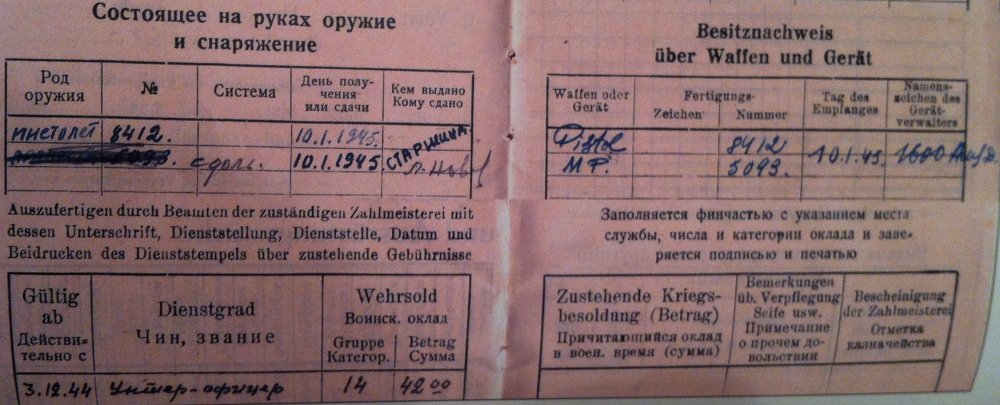 Состоящее на руках оружие
и снаряжение
Род оружия
№
Система
День полу-
чения
или сдачи
Кем выдано
Кому сдано
пистолет 8412. 10.1.1945. СТАРШИНА
5093. сдал. 10.1.1945.
Auszufertigen durch Beamten der zuständigen Zahlmeisterei mit
dessen Unterschrift, Dienststellung, Dienststelle, Datum und
Beidrucken des Dienststempels über zustehende Gebührnisse
Gültig
ab
Действи-
тельно с
Dienstgrad
Чин, звание
Wehrsold
Воинск. оклад
Gruppe
Категор.
Betrag
Сумма
3.12.44 Унтер-офицер 14 42 00
Besitznachweis
über Waffen und Gerät
Waffen oder
Gerät
Fertigungs-
Zeichen
Nummer
Tag des
Empfanges
Namens-
zeichen des
Gerät-
verwalters
Pistol 8412 10.1.45.
MP. 5093.
Заполняется финчастью с указанием места
службы, числа и категории оклада и заве-
ряется подписью и печатью
Zustehende Kriegs-
besoldung (Betrag)
Причитающийся оклад
в воен. время (сумма)
Bemerkungen
üb. Verpflegung
Seife usw.
Примечание
о прочем до-
вольствии
Bescheinigung
der Zahlmeisterei
Отметка
казначейства